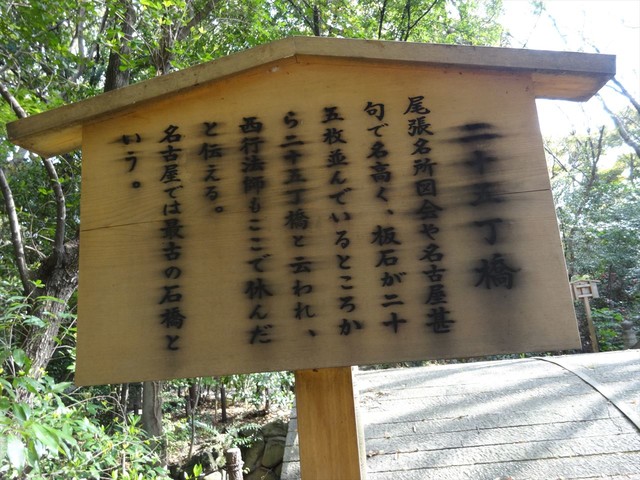 二十五丁橋
尾張名所図会や名古屋甚
句で名高く、板石が二十
五枚並んでいるところか
ら二十五丁橋と云われ、
西行法師もここで休んだ
と伝える。
名古屋では最古の石橋と
いう。